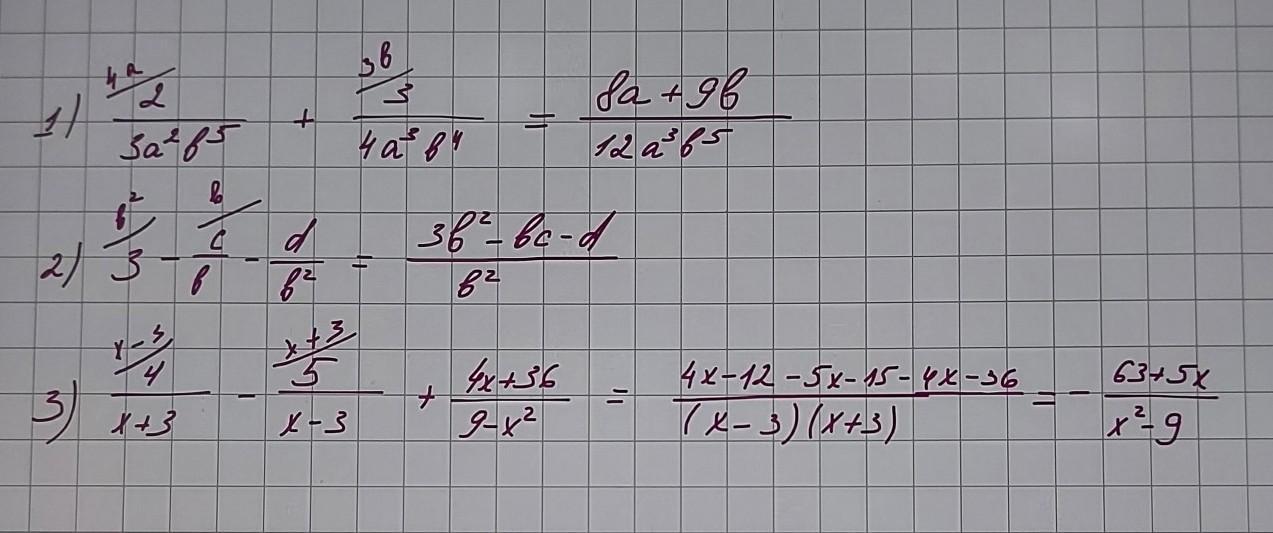 1) 4a/ 2/3a²b⁵ + 3b/ 3/4a³b⁴ = 8a+9b/12a³b⁵
2) b²/ 3 - b/ c/b - d/b² = 3b²-bc-d/b²
3) x-3/ 4/x+3 - x+3/ 5/x-3 + 4x+36/9-x² = 4x-12-5x-15-4x-36/(x-3)(x+3) = - 63+5x/x²-9